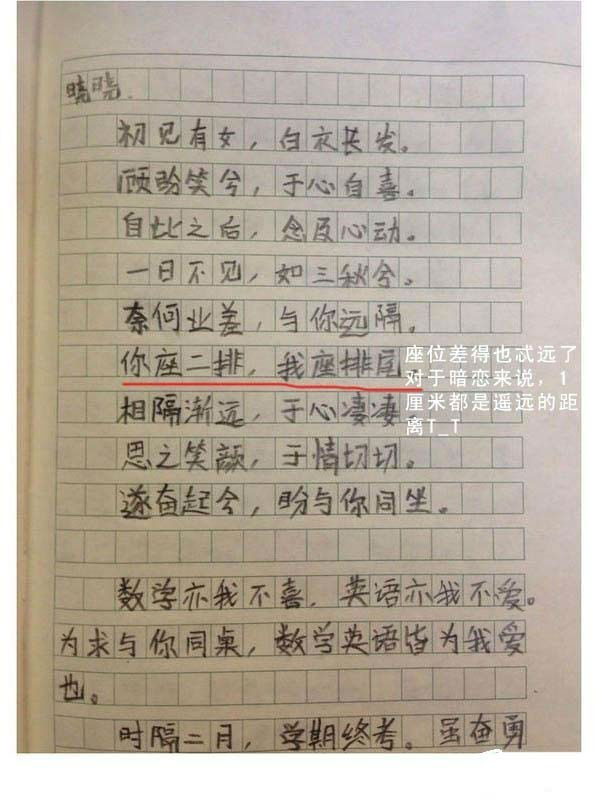 晓晓.
初见有女，白衣长发。
顾盼笑兮，于心自喜。
自此之后，念及心动。
一日不见，如三秋兮。
奈何业差，与你远隔。
你座二排，我座排尾。
相隔渐远，于心凄凄。
思之笑颜，于情切切。
遂奋起兮，盼与你同坐。
数学亦我不喜，英语亦我不爱。
为求与你同桌，数学英语皆为我爱
也。
时隔二月，学期终考。虽奋勇
座位差得也忒远了
对于暗恋来说，1
厘米都是遥远的距
离T_T